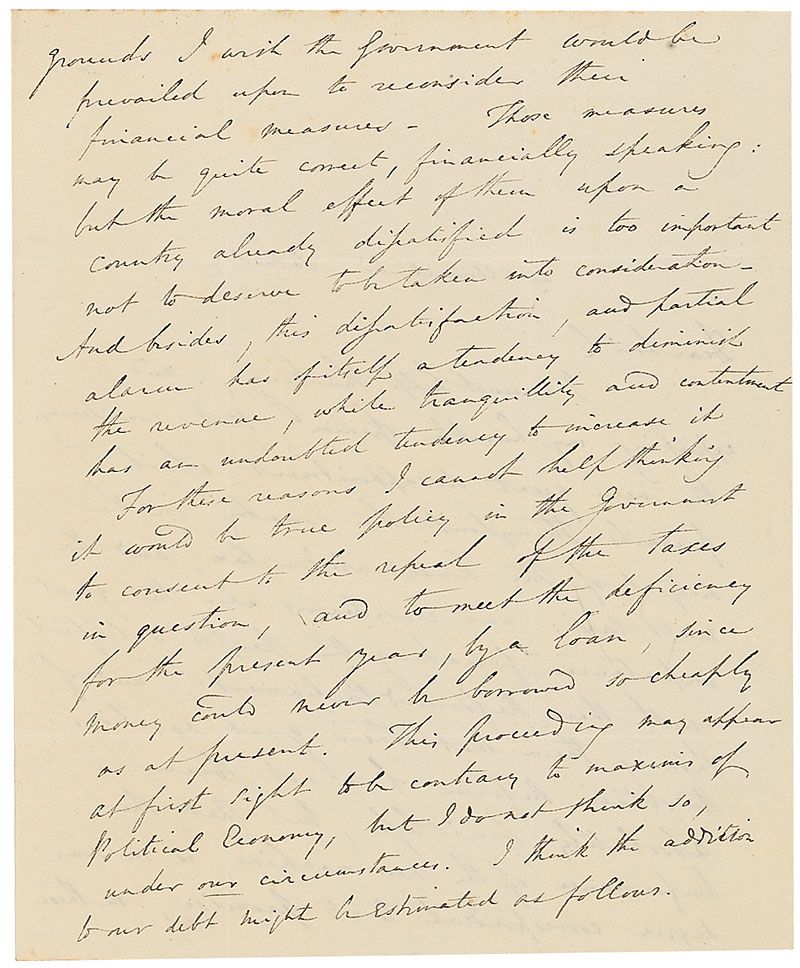 grounds I wish the Government would be
prevailed upon to reconsider their
financial measures - Those measures
may be quite correct, financially speaking:
but the moral effect of them upon a
country already dissatisfied is too important
not to deserve to be taken into consideration -
And besides, this dissatisfaction, and partial
alarm has of itself a tendency to diminish
the revenue, while tranquillity and contentment
has an undoubted tendency to increase it
For these reasons I cannot help thinking
it would be true policy in the Government
to consent to the repeal of the taxes
in question, and to meet the deficiency
for the present year, by a loan, since
money could never be borrowed so cheaply
as at present. This proceeding may appear
at first sight to be contrary to maxims of
Political Economy, but I do not think so,
under our circumstances. I think the addition
to our debt might be estimated as follows.